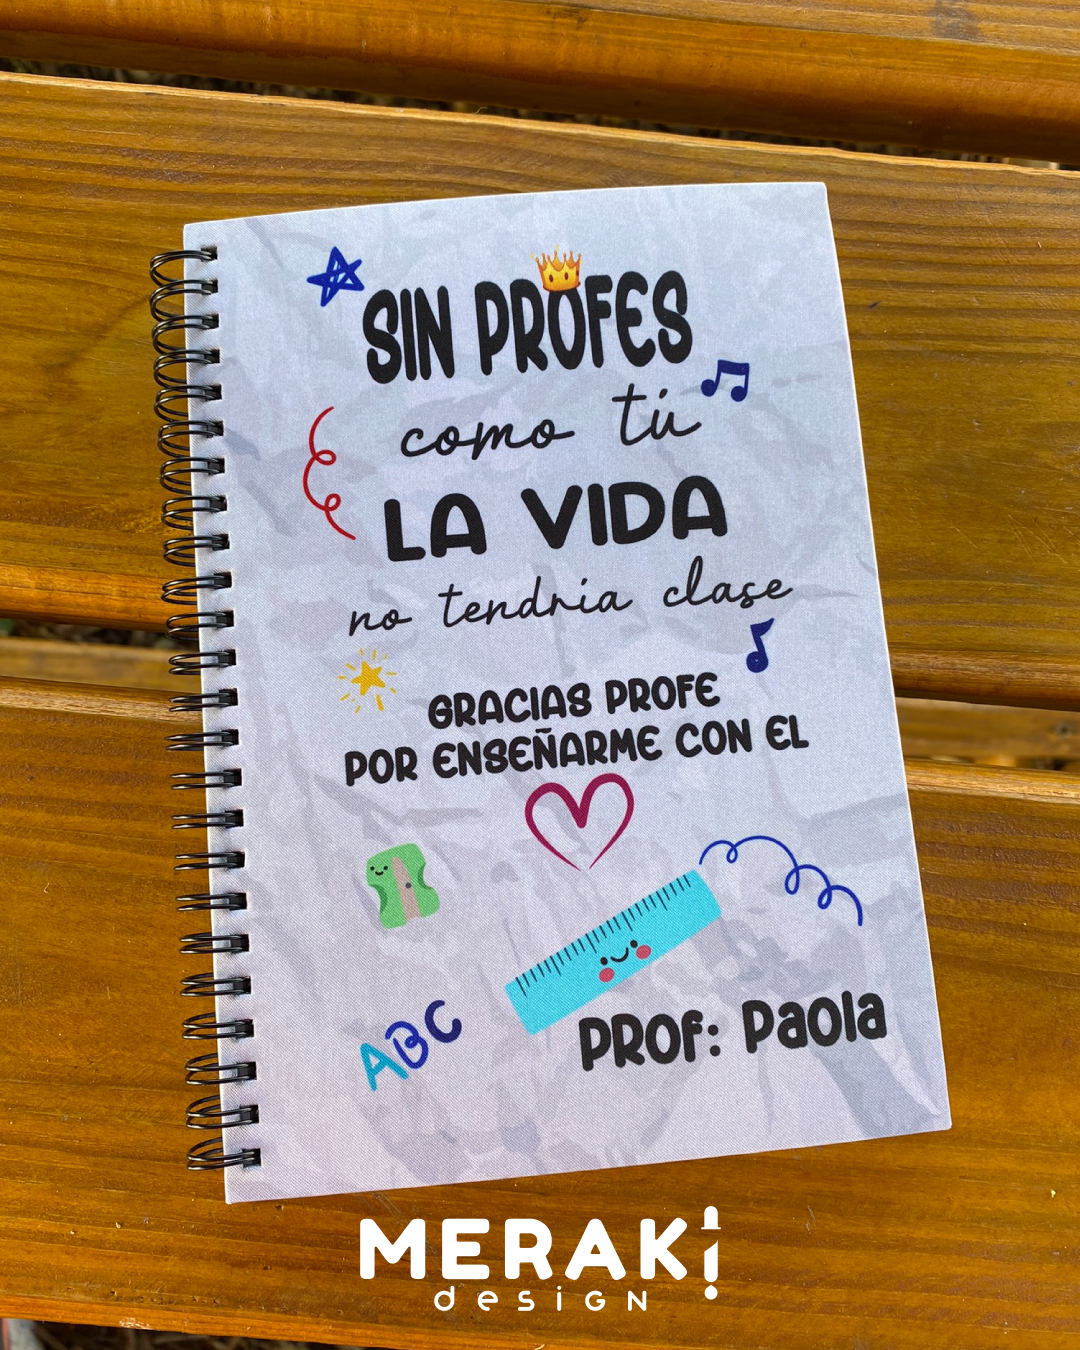 SIN PROFES
como tú
LA VIDA
no tendría clase
GRACIAS PROFE
POR ENSEÑARME CON EL
ABC
PROF: Paola
MERAKi
desiGN